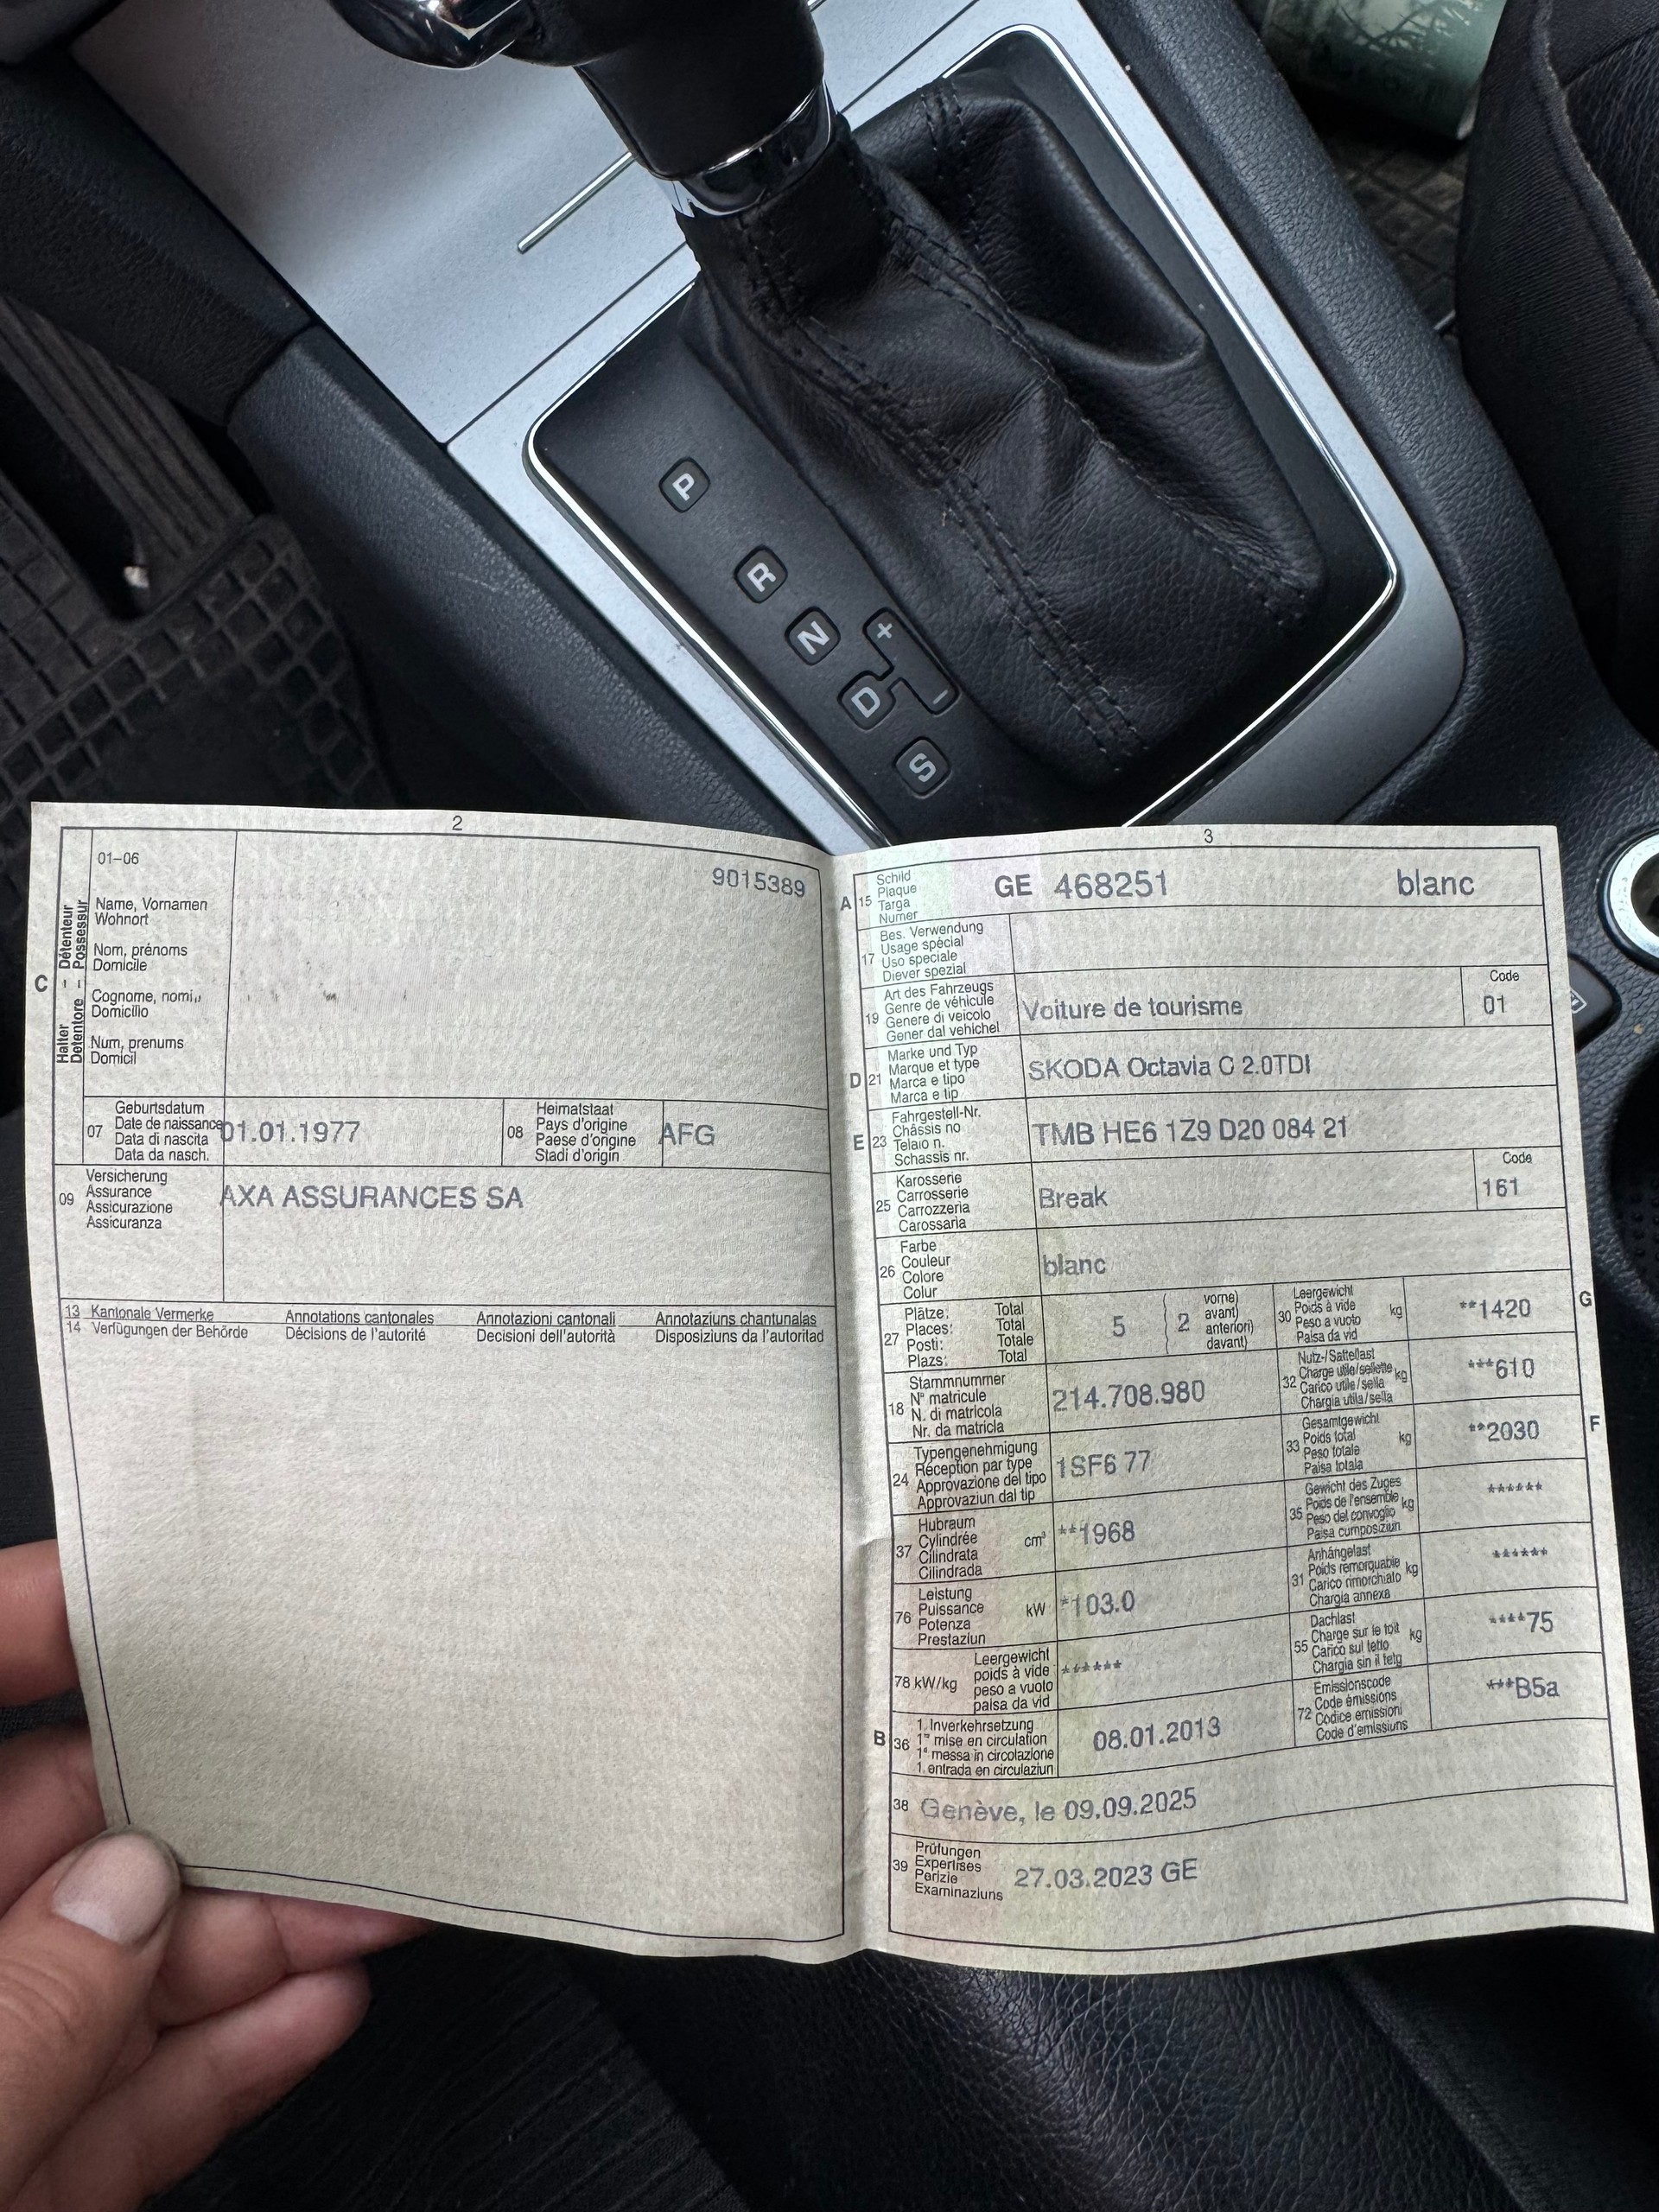 P
R
N
+
D
−
S
2
01–06
9015389
C
Halter – Détenteur
Detentore – Possessur
Name, Vornamen
Wohnort
Nom, prénoms
Domicile
Cognome, nomi
Domicilio
Num, prenums
Domicil
07
Geburtsdatum
Date de naissance
Data di nascita
Data da nasch.
01.01.1977
08
Heimatstaat
Pays d'origine
Paese d'origine
Stadi d'origin
AFG
09
Versicherung
Assurance
Assicurazione
Assicuranza
AXA ASSURANCES SA
13 Kantonale Vermerke Annotations cantonales Annotazioni cantonali Annotaziuns chantunalas
14 Verfügungen der Behörde Décisions de l'autorité Decisioni dell'autorità Disposiziuns da l'autoritad
3
A 15
Schild
Plaque
Targa
Numer
GE 468251 blanc
17
Bes. Verwendung
Usage spécial
Uso speciale
Diever spezial
19
Art des Fahrzeugs
Genre de véhicule
Genere di veicolo
Gener dal vehichel
Voiture de tourisme
Code
01
D 21
Marke und Typ
Marque et type
Marca e tipo
Marca e tip
SKODA Octavia C 2.0TDI
E 23
Fahrgestell-Nr.
Châssis no
Telaio n.
Schassis nr.
TMB HE6 1Z9 D20 084 21
25
Karosserie
Carrosserie
Carrozzeria
Carossaria
Break
Code
161
26
Farbe
Couleur
Colore
Colur
blanc
27
Plätze: Total
Places: Total
Posti: Totale
Plazs: Total
5
( 2
vorne)
avant)
anteriori)
davant)
30
Leergewicht
Poids à vide
Peso a vuoto
Paisa da vid
kg
**1420
G
18
Stammnummer
N° matricule
N. di matricola
Nr. da matricla
214.708.980
32
Nutz-/Sattellast
Charge utile/sellette
Carico utile/sella
Chargia utila/sella
kg
***610
24
Typengenehmigung
Réception par type
Approvazione del tipo
Approvaziun dal tip
1SF6 77
33
Gesamtgewicht
Poids total
Peso totale
Paisa totala
kg
**2030
F
37
Hubraum
Cylindrée
Cilindrata
Cilindrada
cm³
**1968
35
Gewicht des Zuges
Poids de l'ensemble
Peso del convoglio
Paisa cumposiziun
kg
******
76
Leistung
Puissance
Potenza
Prestaziun
kW
*103.0
31
Anhängelast
Poids remorquable
Carico rimorchiato
Chargia annexa
kg
******
78 kW/kg
Leergewicht
poids à vide
peso a vuoto
paisa da vid
******
55
Dachlast
Charge sur le toit
Carico sul tetto
Chargia sin il tetg
kg
****75
B 36
1. Inverkehrsetzung
1re mise en circulation
1a messa in circolazione
1. entrada en circulaziun
08.01.2013
72
Emissionscode
Code émissions
Codice emissioni
Code d'emissiuns
***B5a
38 Genève, le 09.09.2025
39
Prüfungen
Expertises
Perizie
Examinaziuns
27.03.2023 GE